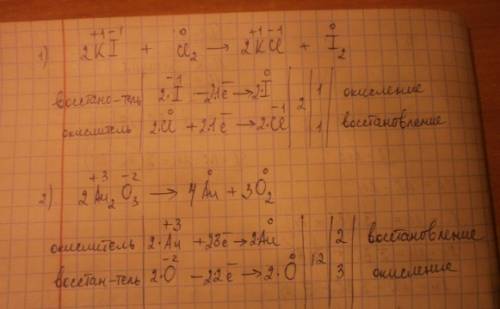 +1 -1 0 +1 -1 0
1) 2KI + Cl₂ → 2KCl + I₂
-1 0
восстано-тель | 2·I - 2·1e̅ → 2·I | 2 | 1 | окисление
0 -1
окислитель | 2·Cl + 2·1e̅ → 2·Cl | 1 | восстановление
+3 -2 0 0
2) 2Au₂O₃ → 4Au + 3O₂
+3 0
окислитель | 2·Au + 2·3e̅ → 2Au | 12 | 2 | восстановление
-2 0
восстан-тель | 2·O - 2·2e̅ → 2·O | 3 | окисление